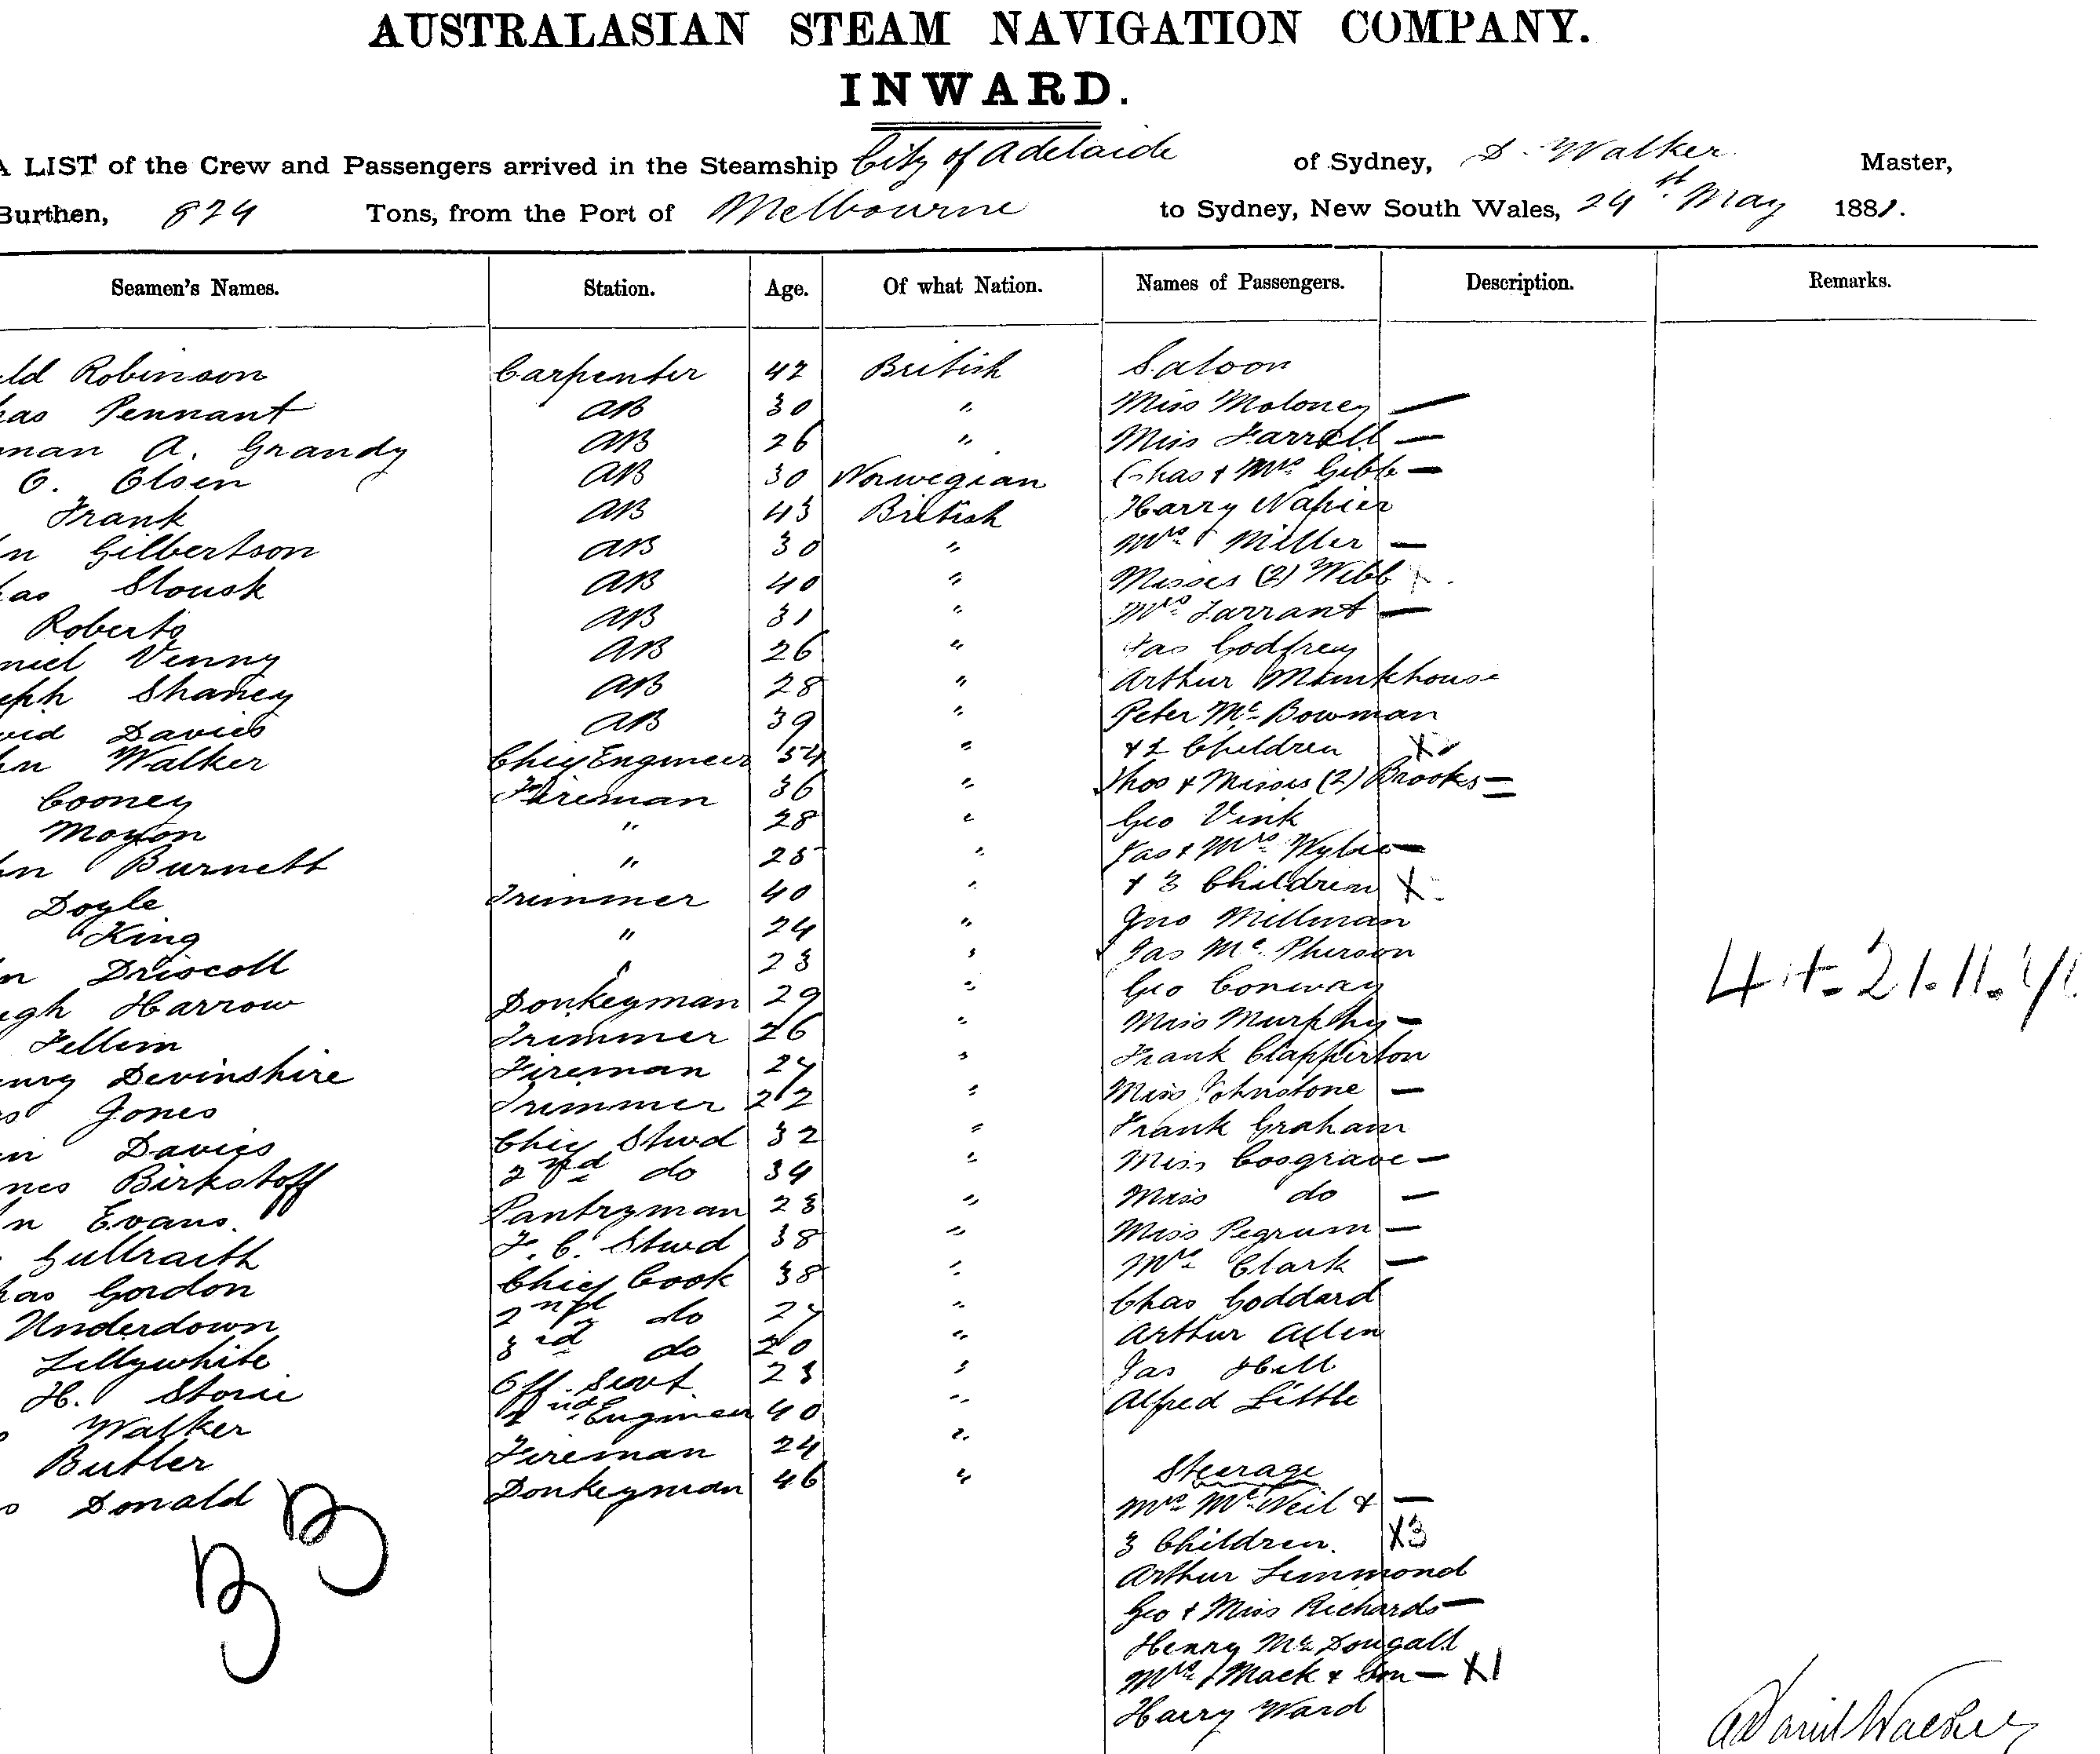 AUSTRALASIAN STEAM NAVIGATION COMPANY.
INWARD.
A LIST of the Crew and Passengers arrived in the Steamship City of Adelaide of Sydney, D. Walker Master,
Burthen, 824 Tons, from the Port of Melbourne to Sydney, New South Wales, 24th May 1881.
Seamen's Names. Station. Age. Of what Nation. Names of Passengers. Description. Remarks.
ld Robinson Carpenter 42 British Saloon
has Pennant AB 30 " Miss Moloney —
man A. Grandy AB 26 " Miss Farrell —
O. Olsen AB 30 Norwegian Chas & Mrs Gibb —
Frank AB 43 British Harry Napier
n Gilbertson AB 30 " Mrs Miller —
has AB 40 " Misses (2) Webb
Roberts AB 31 " Mrs Tarrant —
niel Venny AB 26 " Jas Godfrey
eph Shaney AB 28 " Arthur Monkhouse
vid Davies AB 39 " Peter Mc Bowman
hn Walker Chief Engineer 54 " & 2 Children X
Cooney Fireman 36 " Thos & Misses (2) Brooks =
Moyon " 28 " Geo Vink
hn Burnett " 25 " Jas & Mrs Wylie —
Doyle Trimmer 40 " & 3 Children X
King " 24 " Jno Millman
n Driscoll " 23 " Jas Mc Pherson
ugh Harrow Donkeyman 29 " Geo Conway
Trimmer 26 " Miss Murphy —
enry Devinshire Fireman 27 " Frank Clapperton
s Jones Trimmer 22 " Miss Johnstone —
n Davies Chief Stwd 32 " Frank Graham
mes Birkstoff 2nd do 34 " Miss Cosgrave —
n Evans. Pantryman 23 " Miss do —
F. C. Stwd 38 " Miss Pegrum —
has Gordon Chief Cook 38 " Mrs Clark —
Underdown 2nd do 27 " Chas Goddard
Lillywhite 3rd do 20 " Arthur Allen
H. Storie Off. Servt. 23 " Jas Hill
Walker 2nd Engineer 40 " Alfred Little
Butler Fireman 24 "
Donald Donkeyman 46 " Steerage
Mrs Mc Neil & —
3 Children. X3
Arthur Simmond
Geo & Miss Richards —
Henry Mc Dougall
Mrs Mack & Son — X1
Harry Ward